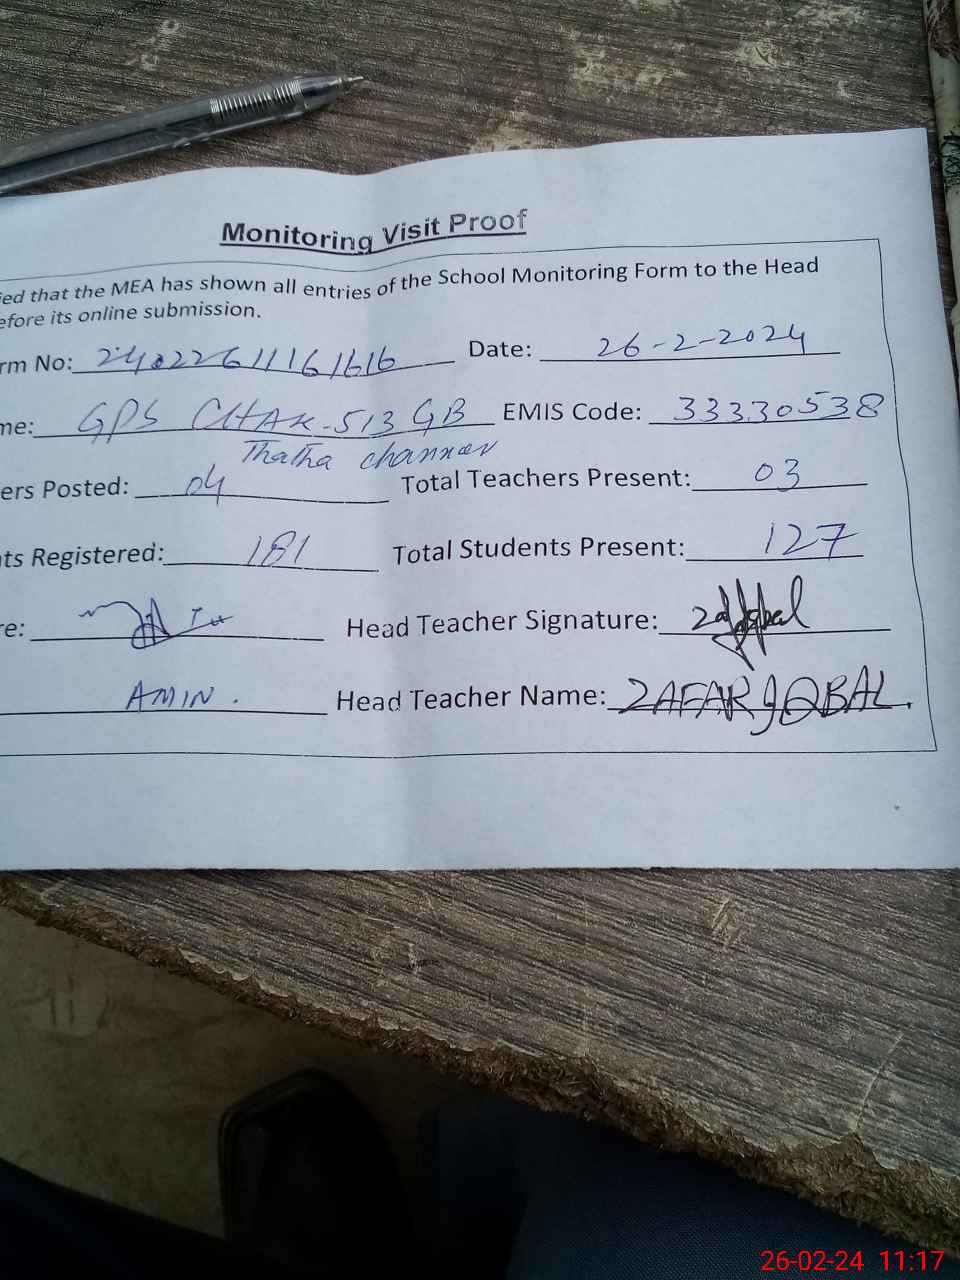 Monitoring Visit Proof
ied that the MEA has shown all entries of the School Monitoring Form to the Head
efore its online submission.
rm No: 24022611161616 Date: 26-2-2024
me: GPS CHAK-513 GB EMIS Code: 33330538
Thatha channer
ers Posted: 04 Total Teachers Present: 03
ts Registered: 181 Total Students Present: 127
re: Head Teacher Signature: Zafar Iqbal
AMIN. Head Teacher Name: ZAFAR IQBAL.
26-02-24 11:17